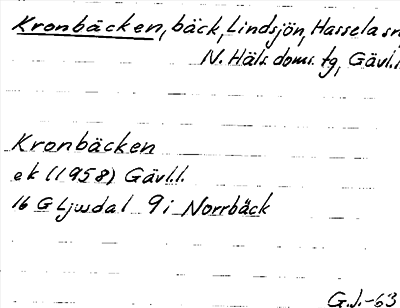 Kronbäcken, bäck, Lindsjön, Hassela sn
N. Häls. doms. tg, Gävl.l.
Kronbäcken
ek (1958) Gävl.l.
16 G Ljusdal 9i Norrbäck
G.J.-63